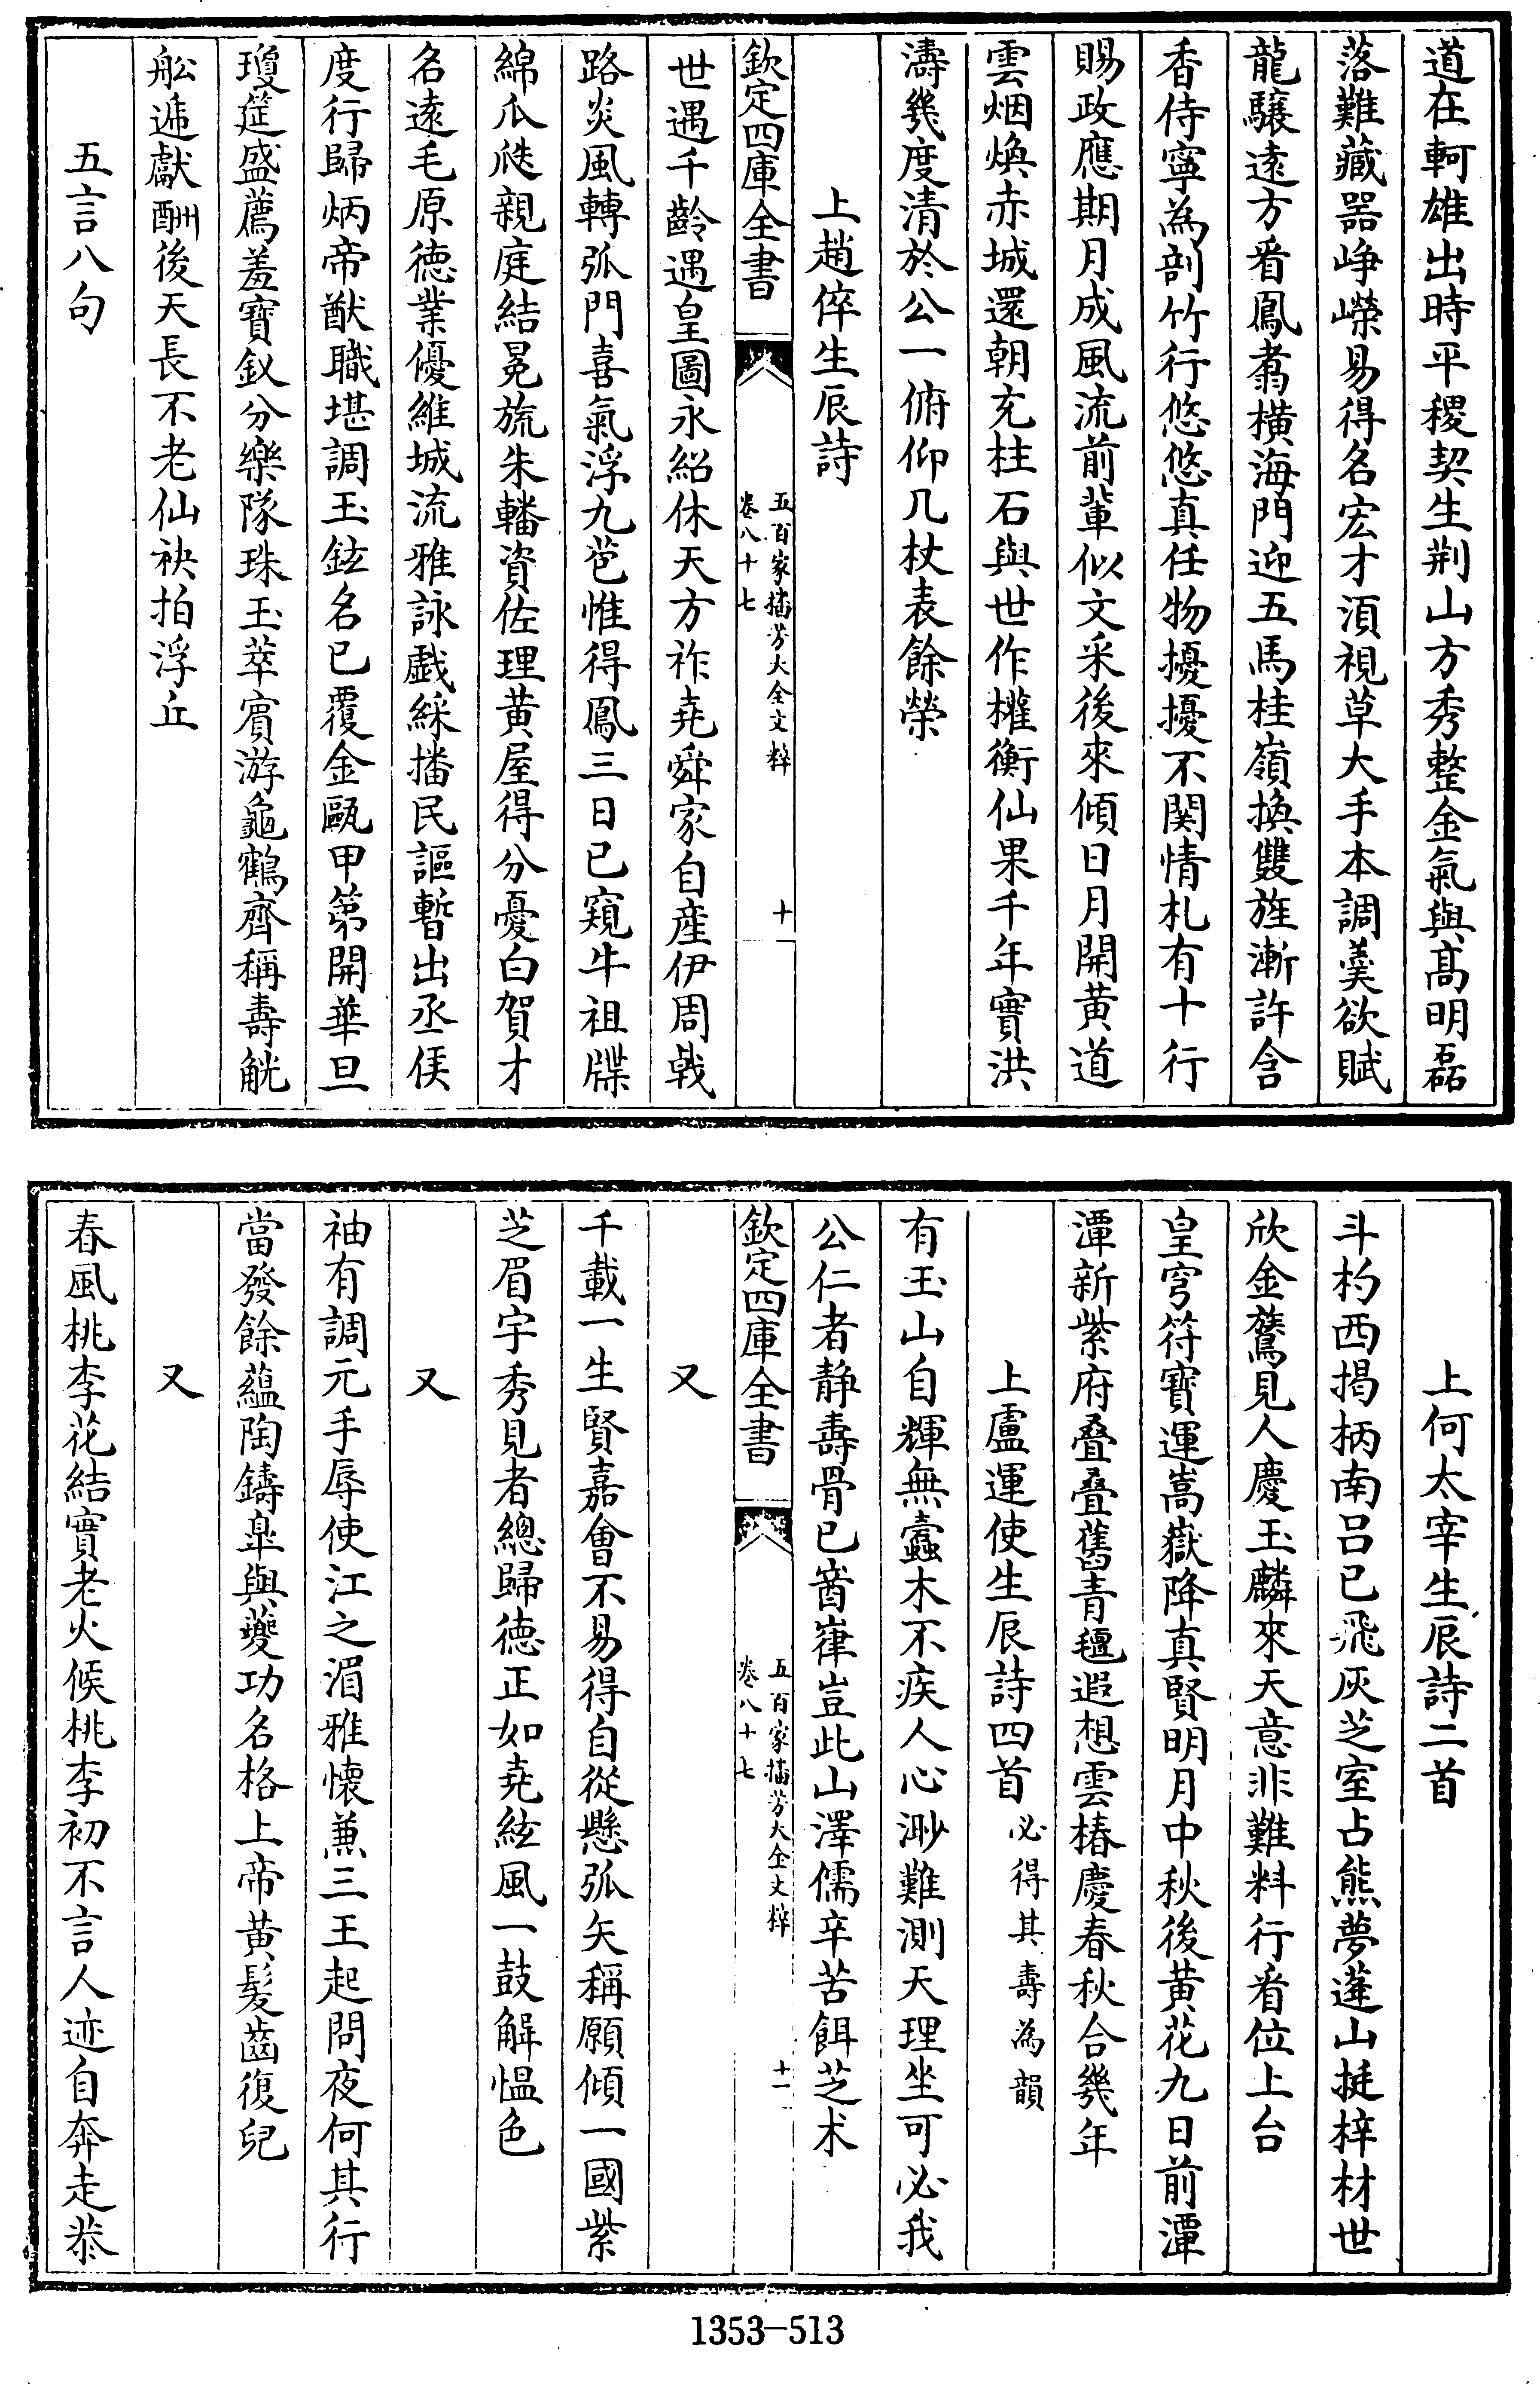 道在軻雄出時平稷契生荆山方秀整金氣與髙明磊
落難藏器崢嶸易得名宏才湏視草大手本調羮欲賦
龍驤逺方看鳳翥横海門迎五馬桂嶺換雙旌漸許含
香侍寧為剖竹行悠悠真任物擾擾不関情札有十行
賜政應期月成風流前輩似文采後來傾日月開黄道
雲烟煥赤城還朝充柱石與世作權衡仙果千年實洪
濤幾度清於公一俯仰几杖表餘榮
上趙倅生辰詩
欽定四庫全書
五百家播芳大全文粹
卷八十七
十
世遇千齡遇皇圖永紹休天方祚堯舜家自産伊周㦸
路炎風轉弧門喜氣浮九苞惟得鳳三日已窺牛祖牒
綿瓜瓞親庭結冕旒朱轓資佐理黄屋得分憂白賀才
名逺毛原徳業優維城流雅詠戯綵播民謳暫出丞侯
度行歸炳帝猷職堪調玉鉉名已覆金甌甲第開華旦
瓊筵盛薦羞寳釵分樂隊珠玉萃賓游龜鶴齊稱壽觥
舩遞獻酬後天長不老仙袂拍浮丘
五言八句
上何太宰生辰詩二首
斗杓西揭柄南吕已飛灰芝室占熊夢蓬山挺梓材世
欣金鵞見人慶玉麟來天意非難料行看位上台
皇穹符寳運嵩嶽降真賢明月中秋後黄花九日前潭
潭新紫府叠叠舊青氊遐想雲椿慶春秋合幾年
上盧運使生辰詩四首必得其壽為韻
有玉山自輝無蠧木不疾人心渺難測天理坐可必我
公仁者静壽骨已崷崒豈此山澤儒辛苦餌芝术
欽定四庫全書
五百家播芳大全文粹
卷八十七
十一
又
千載一生賢嘉會不易得自從懸弧矢稱願傾一國紫
芝眉宇秀見者總歸徳正如堯絃風一鼓解愠色
又
袖有調元手辱使江之湄雅懐兼三王起問夜何其行
當發餘藴陶鑄臯與夔功名格上帝黄髪齒復兒
又
春風桃李花結實老火候桃李初不言人迹自奔走恭
1353-513